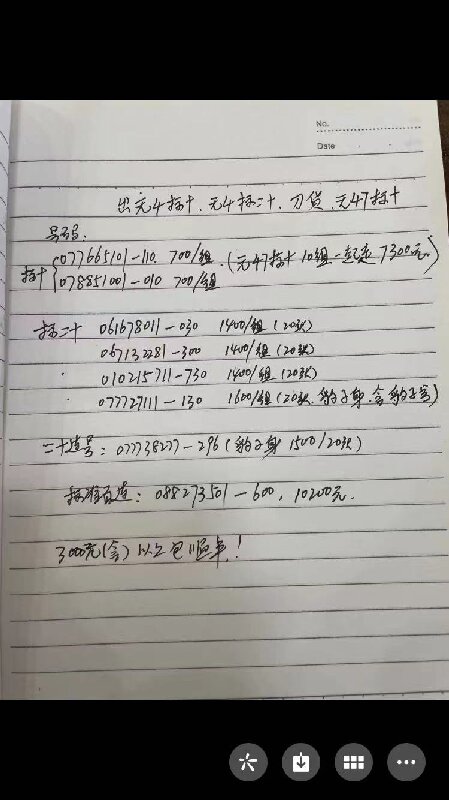 No.
Date
出无4标十、无4标二十、刀货、无47标十
号码:
标十 077665101-110 700/组 (无47标十10组一起走7300元)
078851001-010 700/组
标二十 061678011-030 1400/组(20张)
067132281-300 1400/组(20张)
010215711-730 1400/组(20张)
077727111-130 1600/组(20张、豹子身、含豹子号)
二十连号:077738277-296(豹子身1500/20张)
标准百连:088273501-600,10200元.
3000元(含)以上包顺丰!